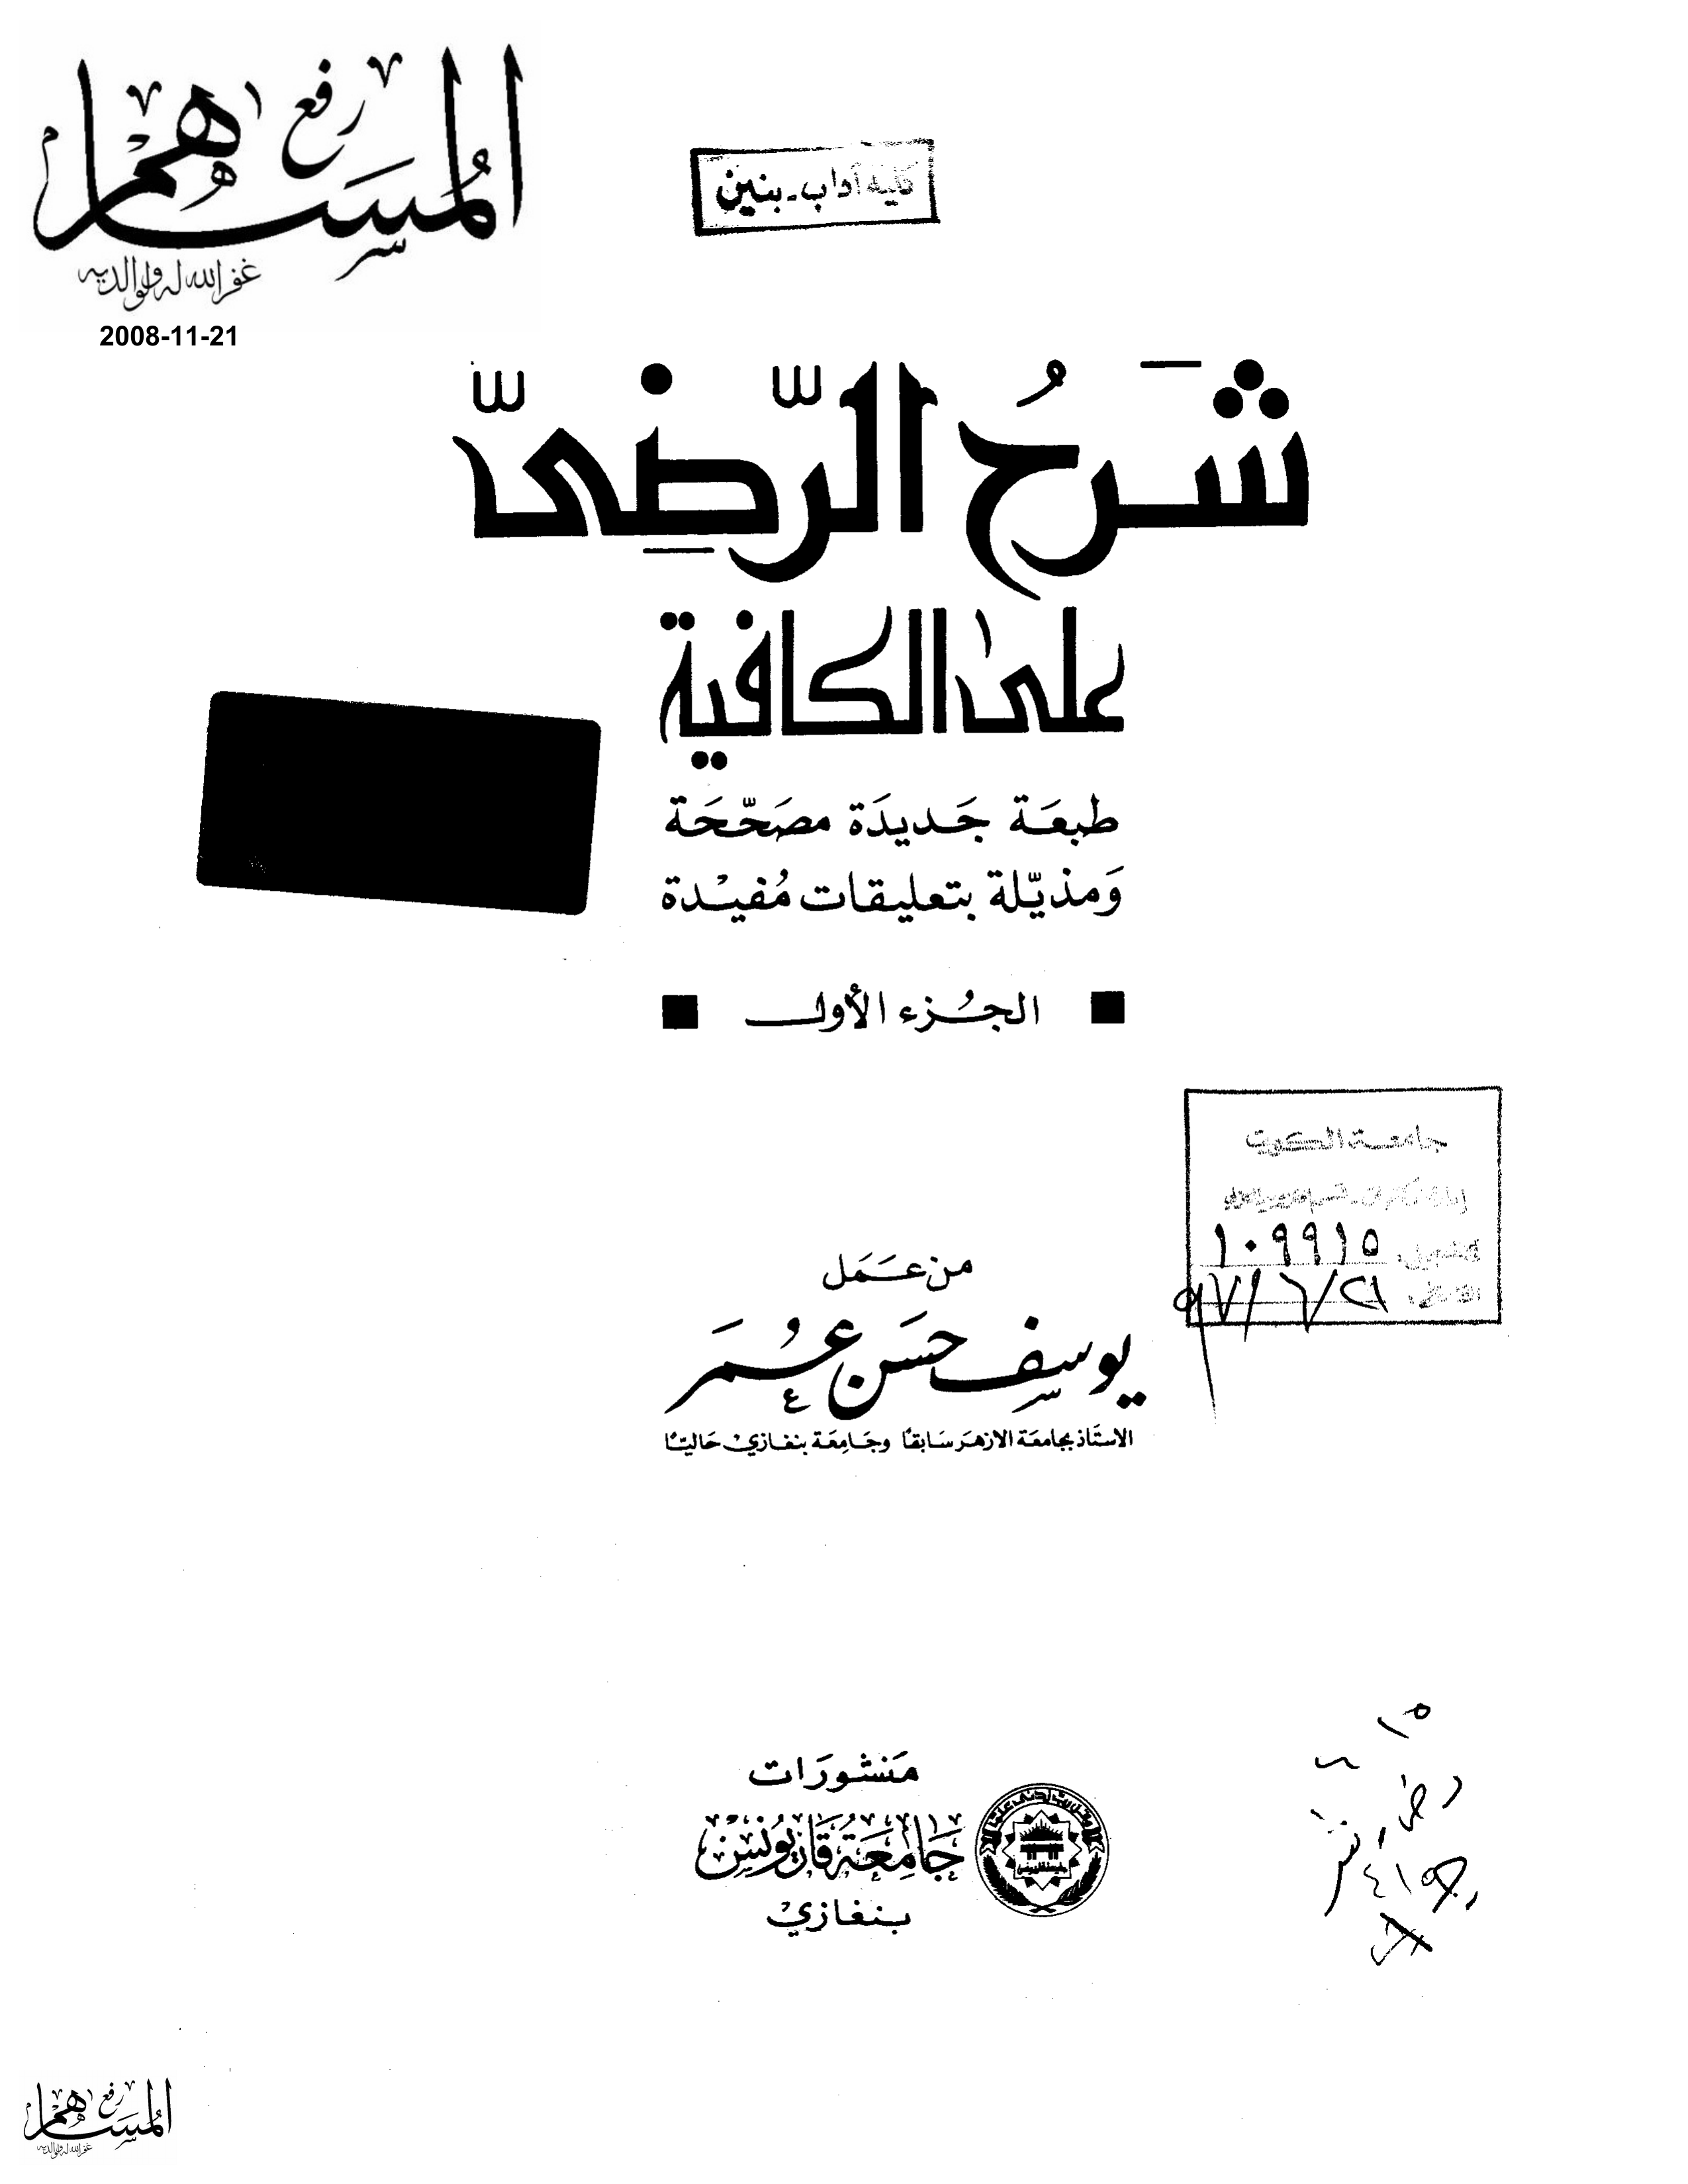 رفع
المساهم
غفر الله له ولوالديه
2008-11-21
كلية آداب - بنين
شَرحُ الرّضِىّ
على الكافية
طبعَة جَديدَة مصَحّحَة
وَمذيّلة بتعليقات مُفيْدة
الجُزء الأول
جامعة الكويت
١٠٩٩١٥
٩٧/٦/٢١
من عَمَل
يوسِف حسَن عُمَر
الاستَاذ بجامعَة الازهَر سَابقًا وجَامِعَة بنغازيْ حَاليًا
مَنشورَات
جَامِعَة قَاريُونس
بنغازيْ
رفع
المساهم
غفر الله له ولوالديه